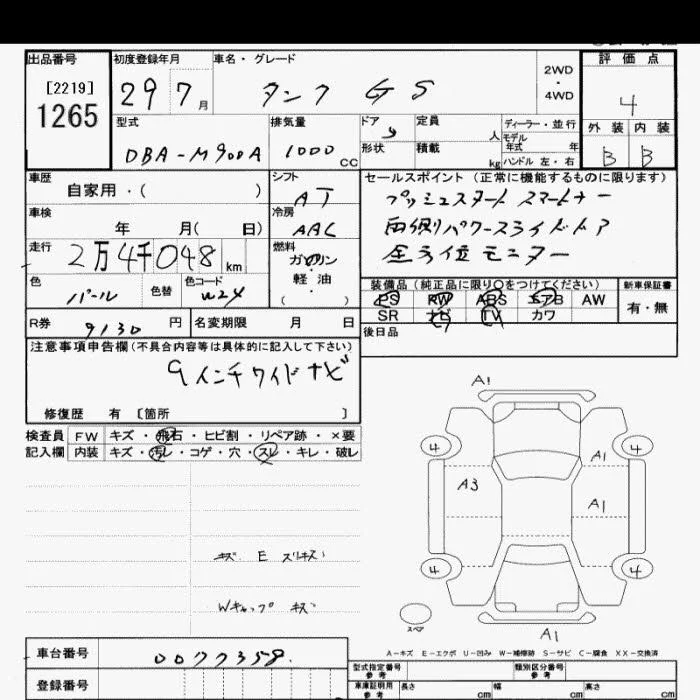 出品番号 初度登録年月 車名・グレード 評価点
[2219]
1265
29 7月 タンク GS
2WD
・
4WD
4
型式 排気量 ドア 定員 ディーラー・並行
DBA-M900A 1000 CC 5 人 モデル年式 年
形状 積載 kg ハンドル 左・右
外装 内装
B B
車歴 シフト セールスポイント (正常に機能するものに限ります)
自家用・( ) AT
プッシュスタート スマートキー
車検 冷房
年 月( 日) AAC
両側パワースライドドア
走行 燃料
2万4千048 km ガソリン
・
軽油
( )
全方位モニター
色 色替 色コード
パール W24
装備品 (純正品に限り○をつけてください) 新車保証書
PS PW ABS エアB AW 有・無
SR ナビ TV カワ
R券 9130 円 名変期限 月 日
後日品
注意事項申告欄(不具合内容等は具体的に記入して下さい)
9インチワイドナビ
修復歴 有 [箇所 ]
検査員 FW キズ・飛石・ヒビ割・リペア跡・×要
記入欄 内装 キズ・汚レ・コゲ・穴・スレ・キレ・破レ
キズ E スリキズ
Wキャップ キズ
A1
4 4
A1
A3
A1
4 4
スペア
A1
A-キズ E-エクボ U-凹み W-補修跡 S-サビ C-腐食 XX-交換済
車台番号 0077358
登録番号
型式指定番号 参考 類別区分番号 参考
車庫証明用 参考 長さ cm 幅 cm 高さ cm